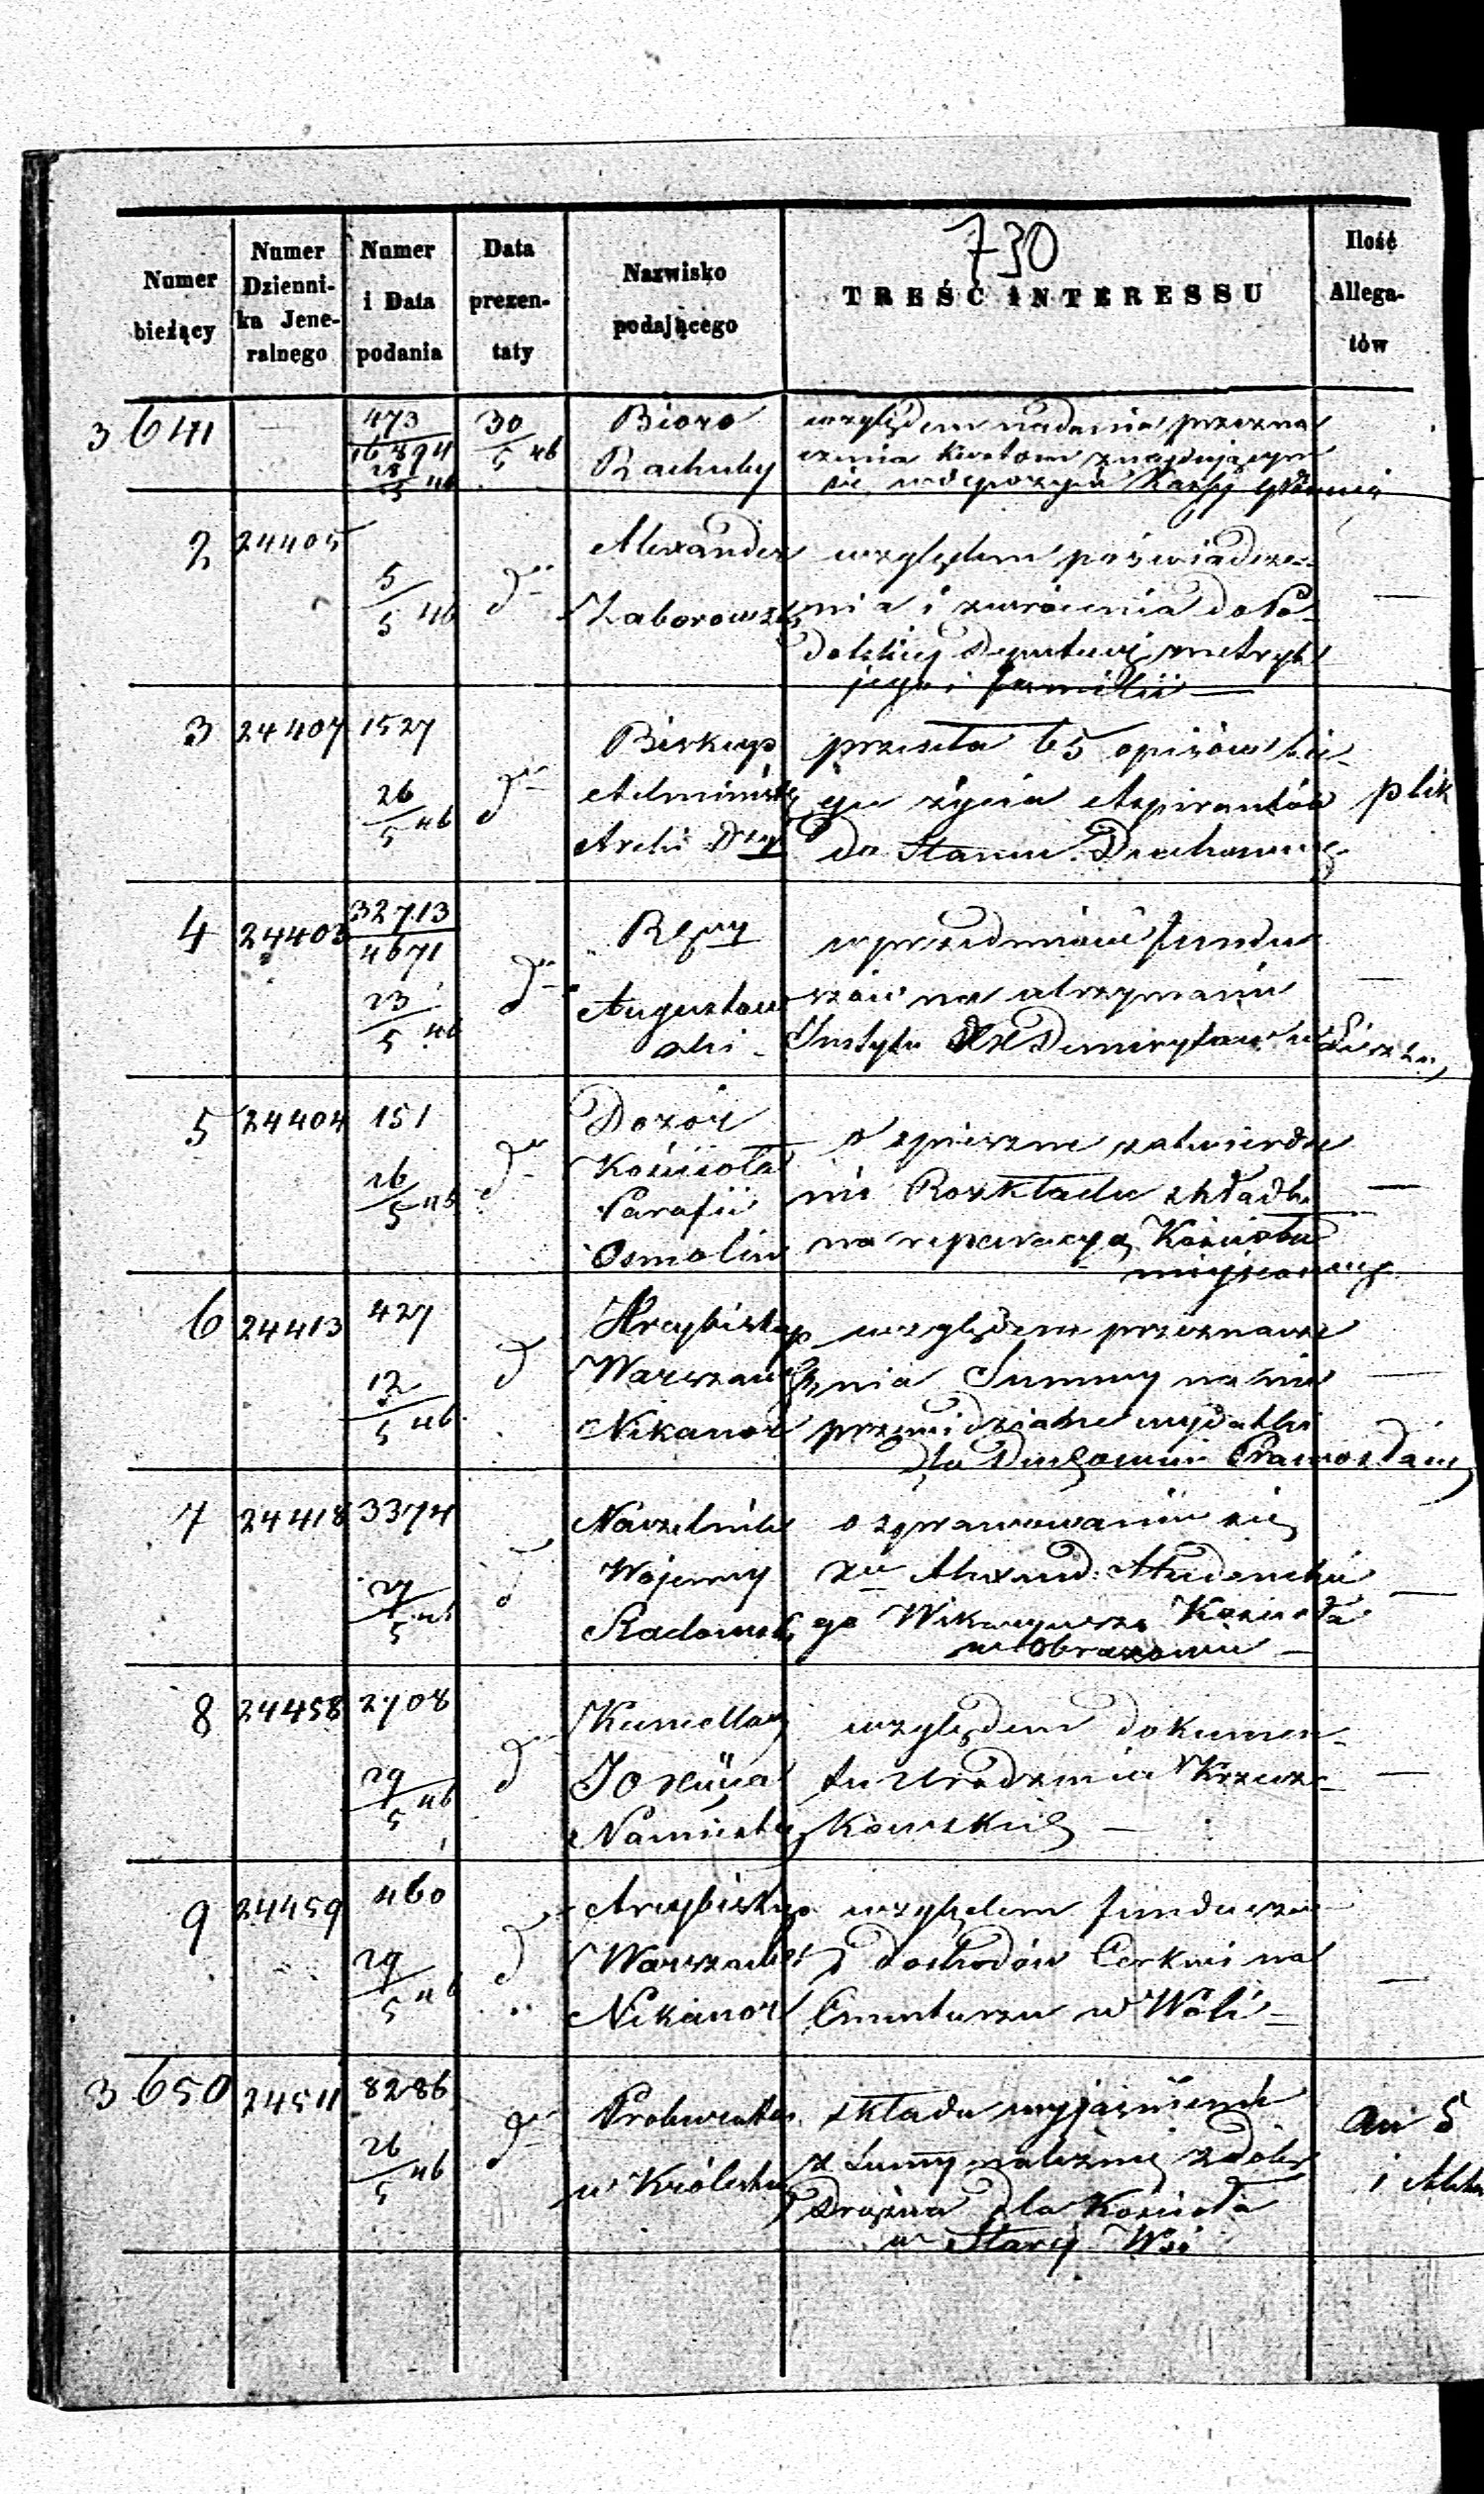 730
Numer bieżący
Numer Dzienni-ka Jene-ralnego
Numer i Data podania
Data prezen-taty
Nazwisko podającego
TREŚĆ INTERESSU
Ilość Allega-tów
3641
473
16894
28/5 46
30/5 46
Bioro
Rachuby
względem nadania przezna
czenia kwotom znajdującym
się w depozycie Kassy Głównej
2 24405
5/5 46
do
Alexander
Zaborowski
względem poświadcze-
nia i zwrócenia do Po-
dolskiej Deputacyi metryk
jego i familii —
3 24407 1527
26/5 46
do
Biskup
Administr
Archi Dyi
przesła 65 opisów bie-
gu życia Aspirantów
do Stanu Duchowneg
plik
4 24403 32713
4671
23/5 46
do
Augustow
ski
w przedmiocie fundu
szów na utrzymanie
Instytu XX Demerytów w
—
5 24404 151
26/5 46
do
Dozór
Kościoła
Parafii
Osmolin
o spieszne zatwierdze
nie Rozkładu składki
na reperacyą Kościoła
miejscoweg
—
6 24413 427
12/5 46
d
Arcybiskup
Warszawski
Nikanor
względem przeznacze
nia Summy na nie
przewidziane wydatki
dla Duchowień Prawosław
—
7 24418 3374
27/5 46
d
Naczelnik
Wojenny
Radomsk
o sprawowaniu się
Xa Alexand.
go Wikaryusza Kościoła
w Obrazowie —
—
8 24458 2708
29/5 46
d
Kancellary
JO Xięcia
Namiestn
względem dokumen-
tu urodzenia Krzecz-
kowskieg —
—
9 24459 460
29/5 46
d
Arcybiskup
Warszawski
Nikanor
względem funduszu
z dochodów Cerkwi na
Cmentarzu w Woli —
—
3650 24511 8286
26/5 46
do
Prokurator
w Królestw
składa wyjaśnienie
z Summy należnej z dóbr
dla Kościoła
w Starej Wsi
an 5